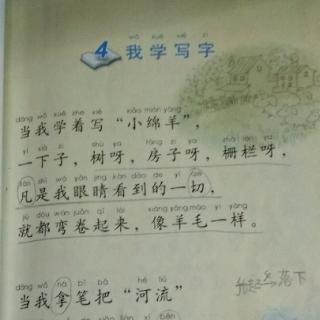 wǒ xué xiě zì
4 我学写字
dāng wǒ xué zhe xiě xiǎo mián yáng
当我学着写“小绵羊”，
yí xià zi shù ya fáng zi ya zhà lan ya
一下子，树呀，房子呀，栅栏呀，
fán shì wǒ yǎn jing kàn dào de yí qiè
凡是我眼睛看到的一切，
jiù dōu wān juǎn qǐ lái xiàng yáng máo yí yàng
就都弯卷起来，像羊毛一样。
dāng wǒ ná bǐ bǎ hé liú
当我拿笔把“河流”
落下